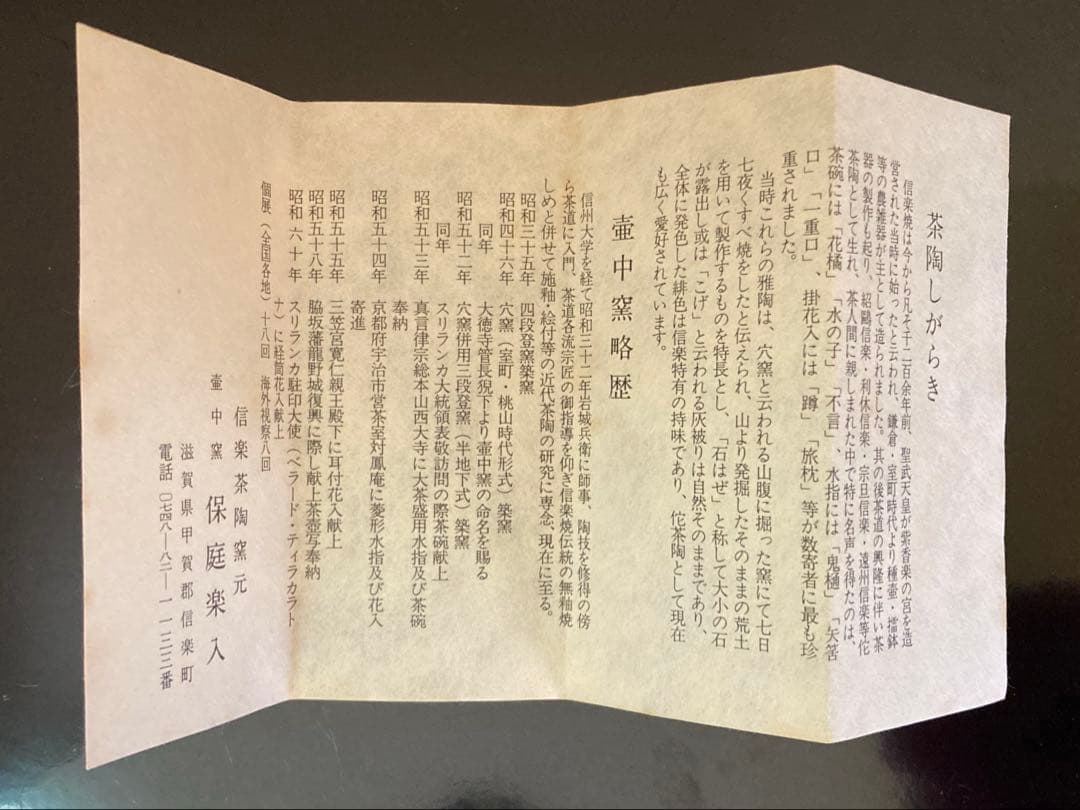 茶陶しがらき
信楽焼は今から凡そ千二百余年前、聖武天皇が紫香楽の宮を造
営された当時に始ったと云われ、鎌倉・室町時代より種壷・擂鉢
等の農雑器が主として造られました。其の後茶道の興隆に伴い茶
器の製作も起り、紹鷗信楽・利休信楽・宗旦信楽・遠州信楽等佗
茶陶として生れ、茶人間に親しまれた中で特に名声を得たのは、
茶碗には「花橘」「水の子」「不言」、水指には「鬼桶」「矢筈
口」「一重口」、掛花入には「蹲」「旅枕」等が数寄者に最も珍
重されました。
当時これらの雅陶は、穴窯と云われる山腹に掘った窯にて七日
七夜くすべ焼をしたと伝えられ、山より発掘したそのままの荒土
を用いて製作するものを特長とし、「石はぜ」と称して大小の石
が露出し或は「こげ」と云われる灰被りは自然そのままであり、
全体に発色した緋色は信楽特有の持味であり、佗茶陶として現在
も広く愛好されています。
壷中窯略歴
信州大学を経て昭和三十二年岩城兵衛に師事、陶技を修得の傍
ら茶道に入門、茶道各流宗匠の御指導を仰ぎ信楽焼伝統の無釉焼
しめと併せて施釉・絵付等の近代茶陶の研究に専念、現在に至る。
昭和三十五年 四段登窯築窯
昭和四十六年 穴窯（室町・桃山時代形式）築窯
同年 大徳寺管長猊下より壷中窯の命名を賜る
昭和五十二年 穴窯併用三段登窯（半地下式）築窯
同年 スリランカ大統領表敬訪問の際茶碗献上
昭和五十三年 真言律宗総本山西大寺に大茶盛用水指及び茶碗
奉納
昭和五十四年 京都府宇治市営茶室対鳳庵に菱形水指及び花入
寄進
昭和五十五年 三笠宮寛仁親王殿下に耳付花入献上
昭和五十八年 脇坂藩龍野城復興に際し献上茶壷写奉納
昭和六十年 スリランカ駐印大使（ベラード・ティラカラト
ナ）に経筒花入献上
個展（全国各地）十八回 海外視察八回
信楽茶陶窯元
壷中窯 保庭楽入
滋賀県甲賀郡信楽町
電話〔〇七四八─八二─一一三三番